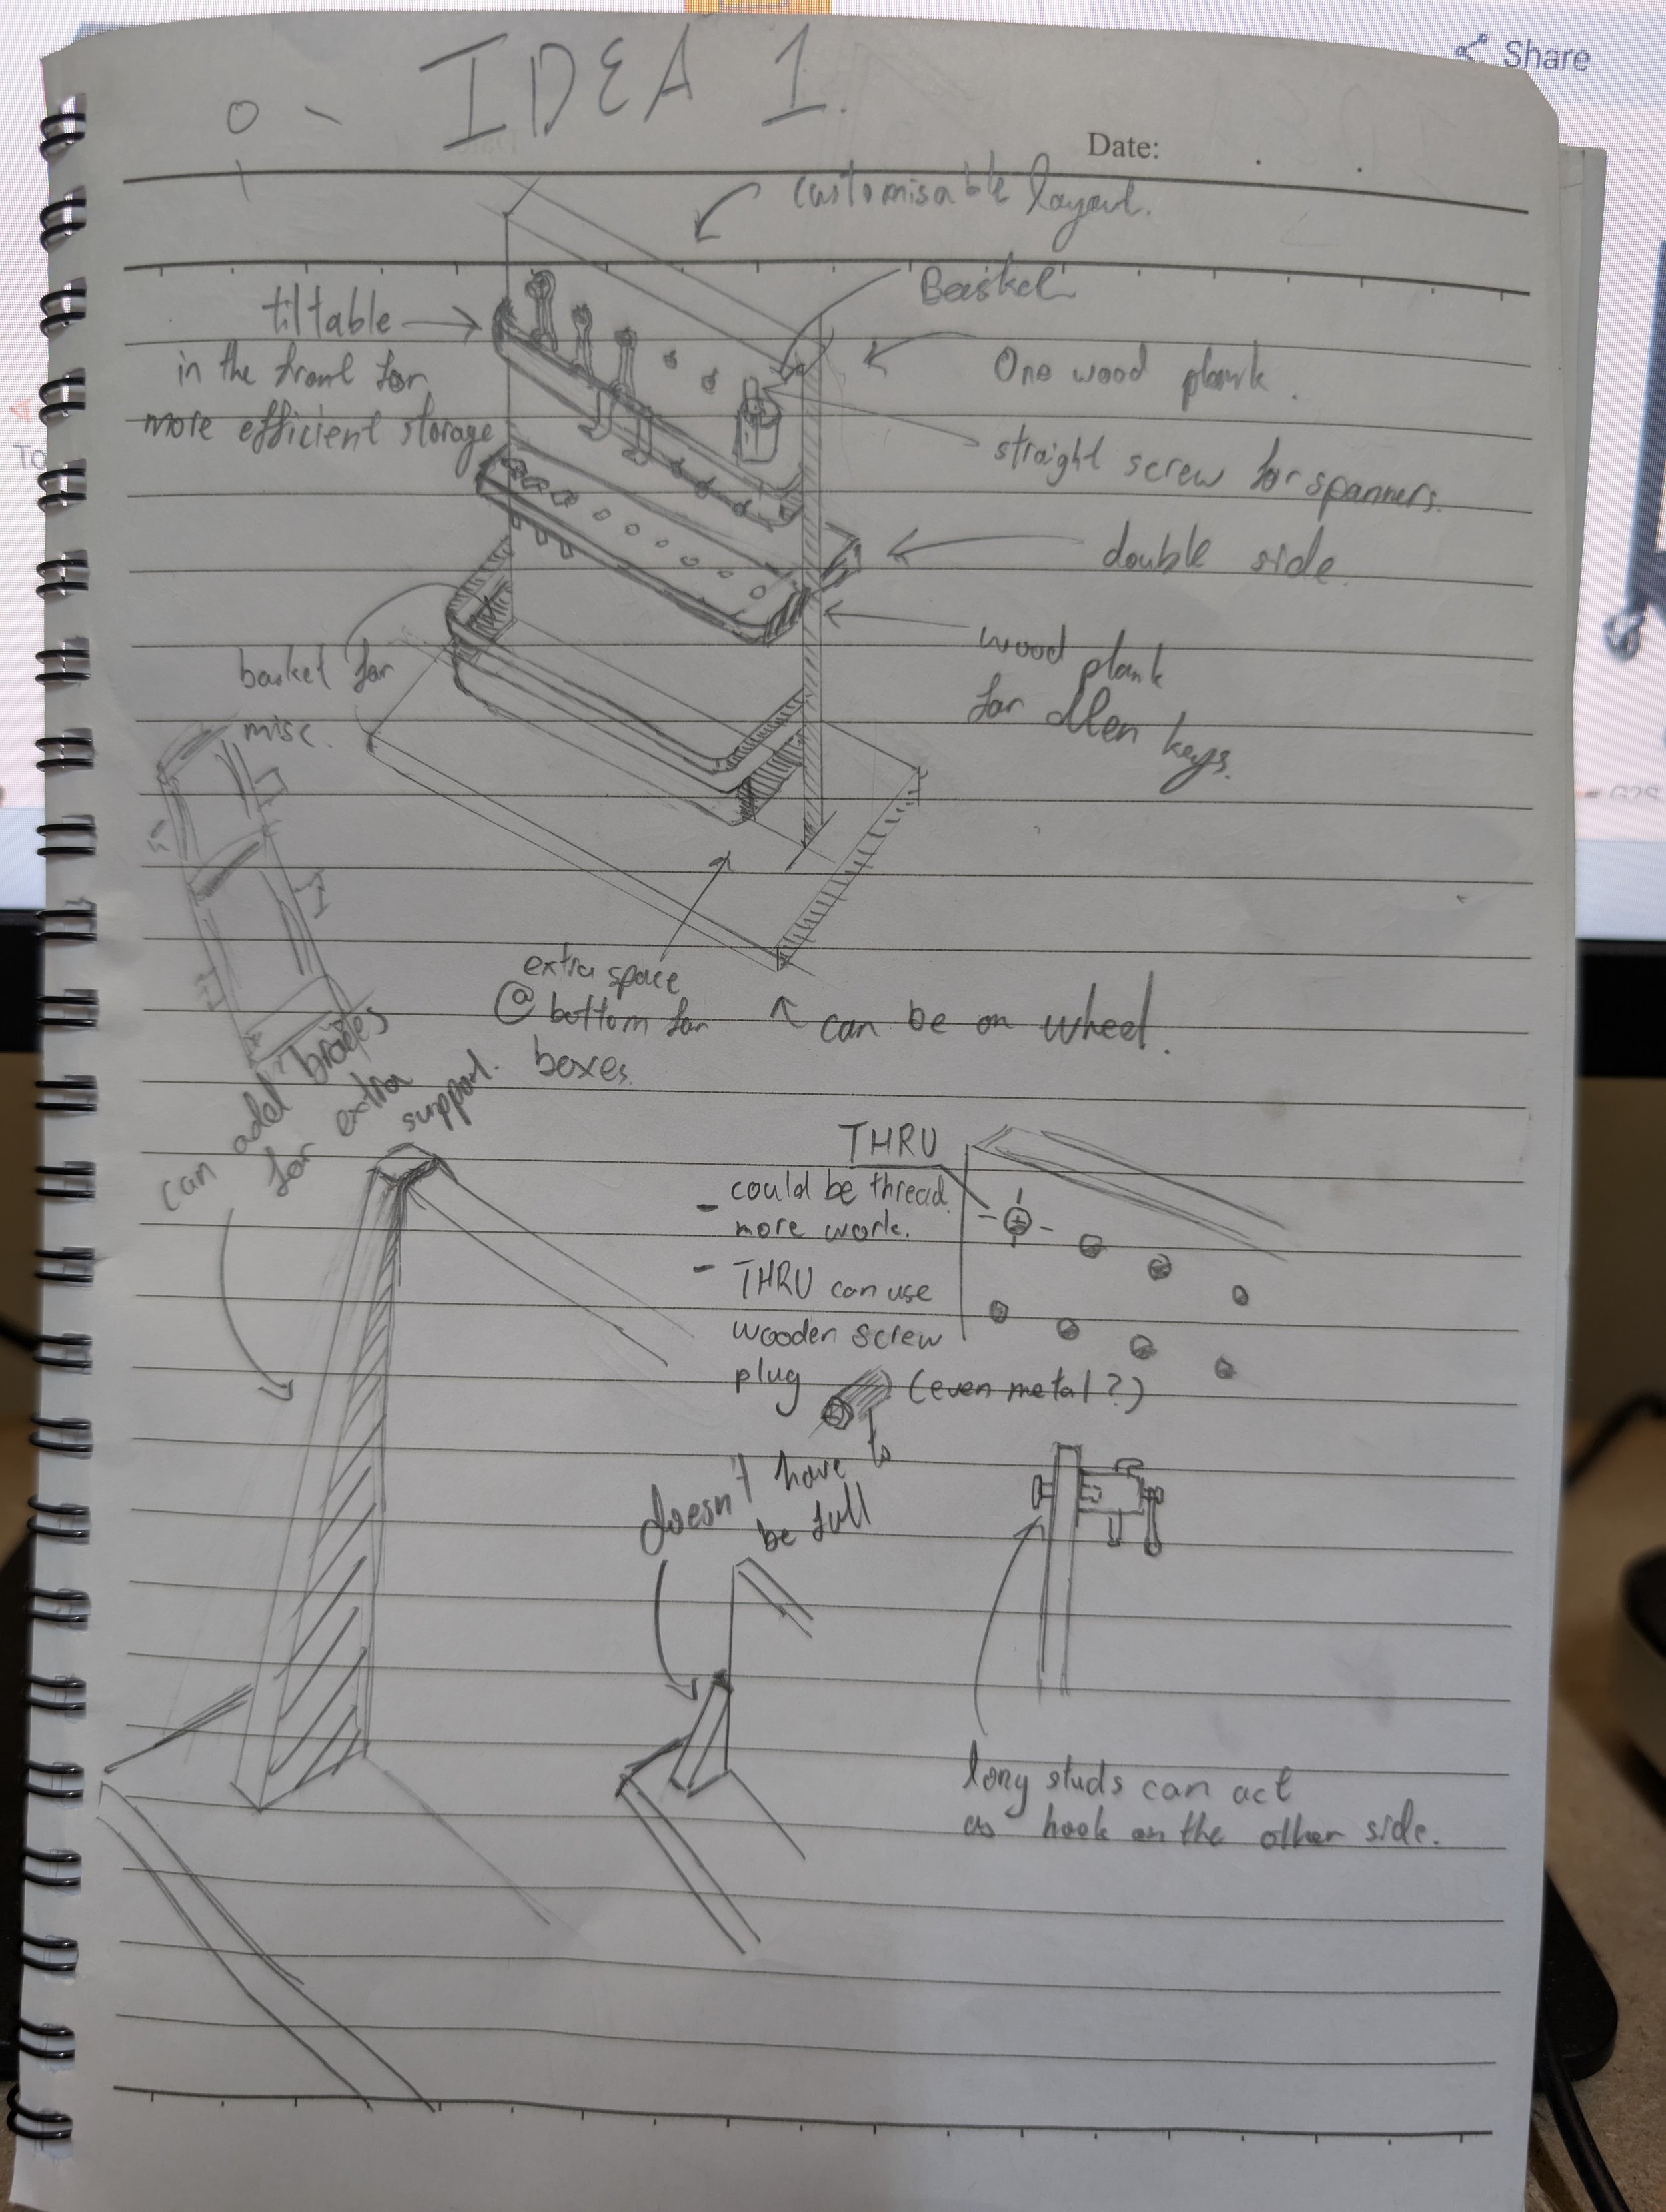 Share
IDEA 1.
Date:
customisable layout.
Basket
tiltable
in the front for
more efficient storage
One wood plank.
straight screw for spanners.
double side.
wood plank
for Allen keys.
basket for
misc.
extra space
@ bottom for
boxes.
can be on wheel.
can add braces
for extra
support.
THRU
- could be thread
more work.
- THRU can use
wooden screw
plug (even metal?)
doesn't have to
be full
long studs can act
as hook on the other side.